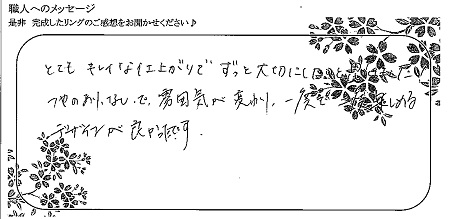 職人へのメッセージ
是非 完成したリングのご感想をお聞かせください♪
とても キレイな仕上がりで ずっと大切にし
つやのあり、なしで、雰囲気が変わり、一度で しめる
デザインが 良かったです.